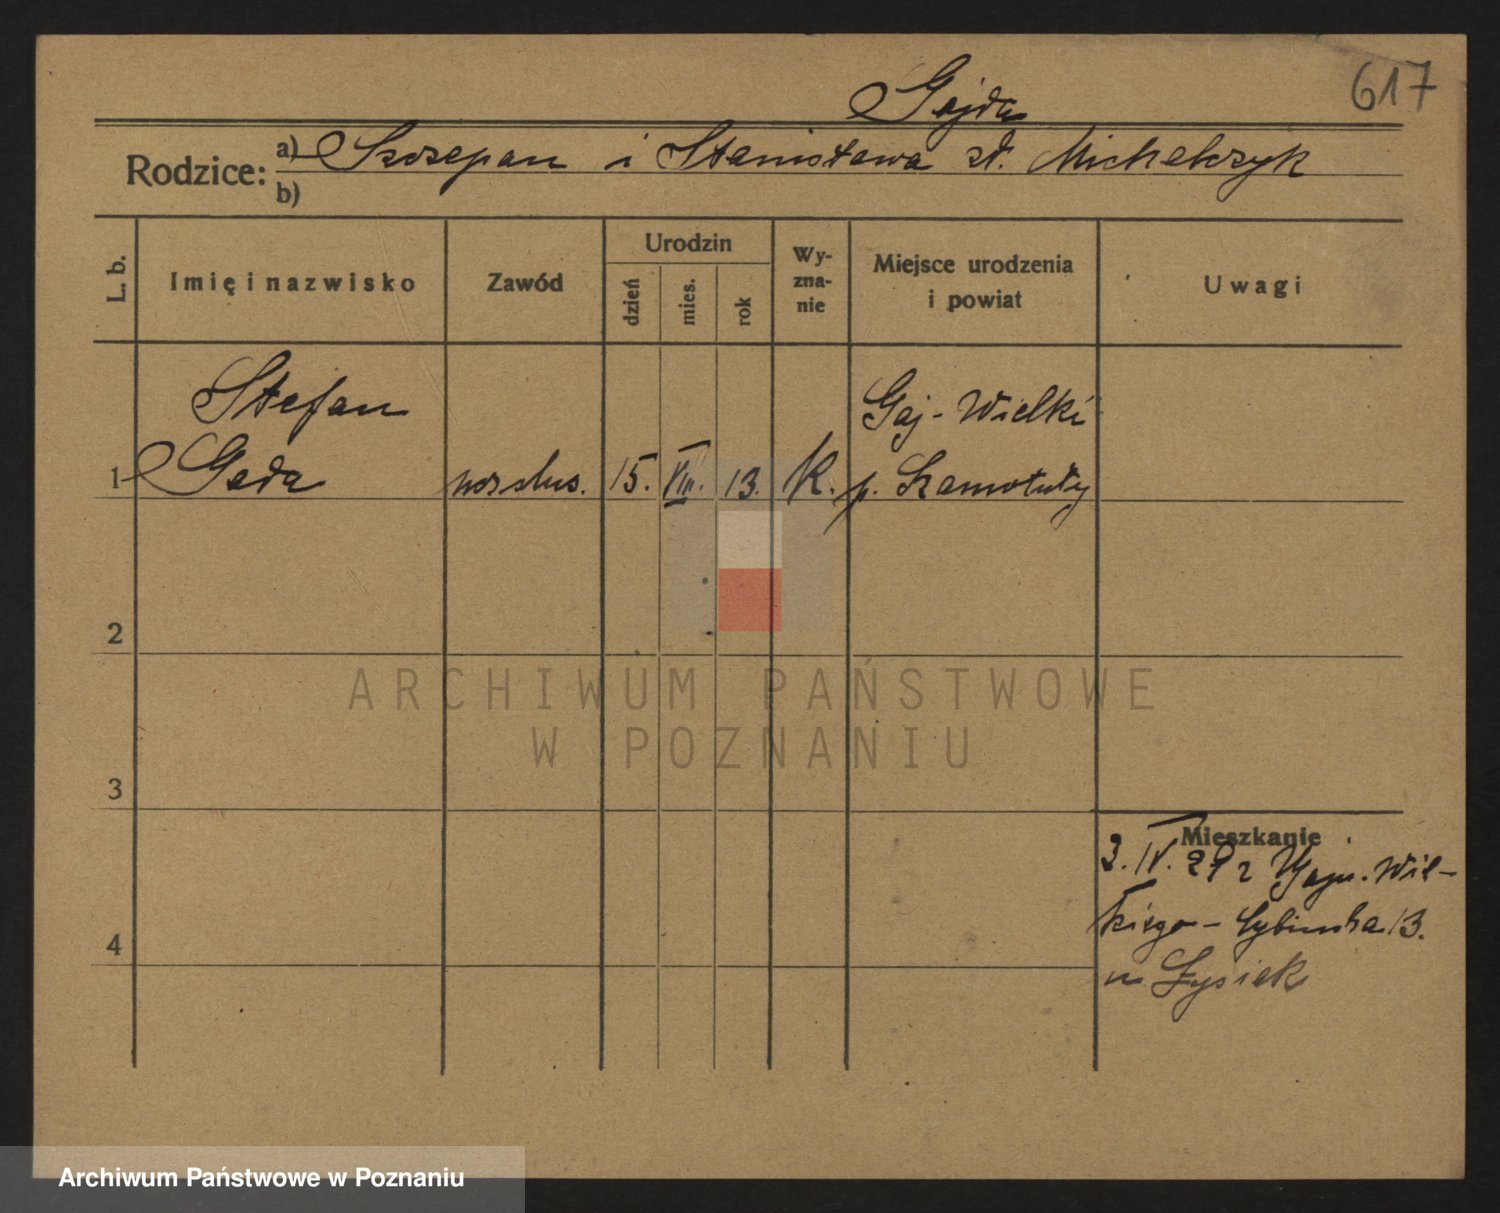 617
Gajda
Rodzice: a) Szczepan i Stanisława zd. Michalczyk
b)
L. b. Imię i nazwisko Zawód Urodzin dzień mies. rok Wy-zna-nie Miejsce urodzenia i powiat Uwagi
Stefan Gaj-Wielki
1 Gada ucz slus. 15. VIII. 13. K. p. Szamotuły
2
ARCHIWUM PAŃSTWOWE
W POZNANIU
3
Mieszkanie
3. IV. 29 z Gaju-Wiel-
kiego - Cybinska 13.
4
u Łysiak
Archiwum Państwowe w Poznaniu